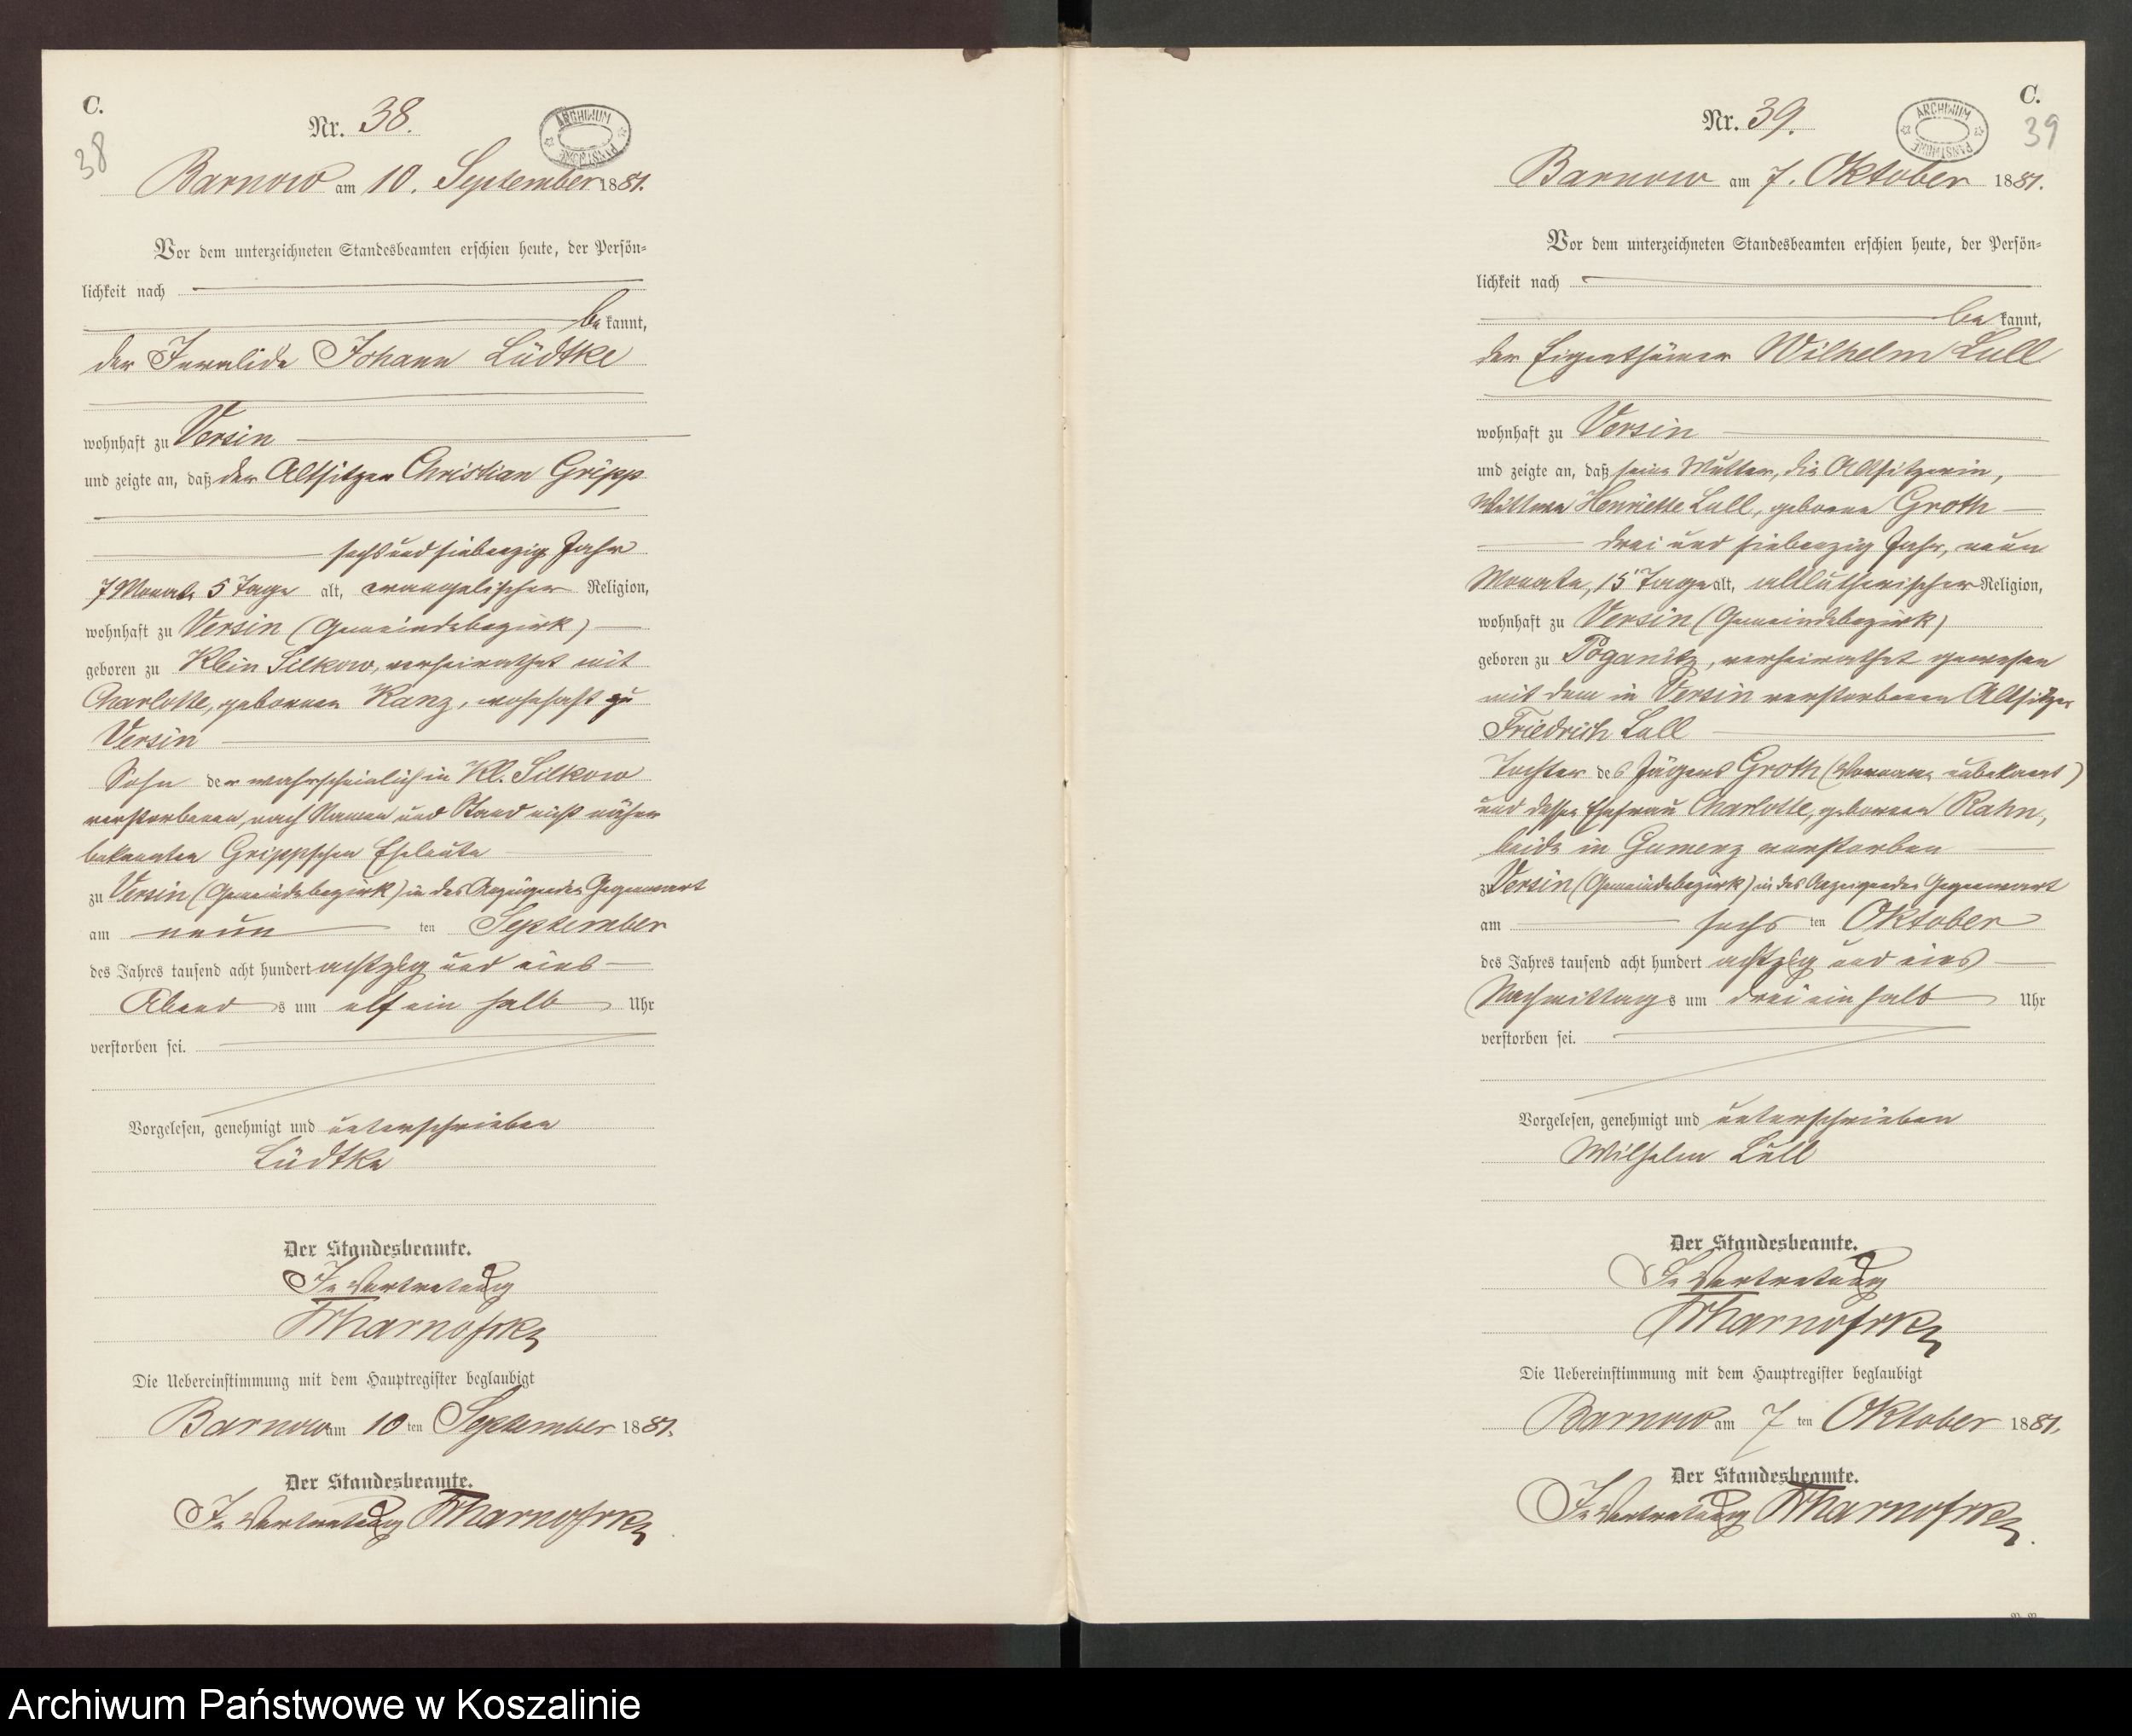 C.
Nr. 38.
ARCHIWUM PAŃSTWOWE
38
Barnow am 10. September 1881.
Vor dem unterzeichneten Standesbeamten erschien heute, der Persön=
lichkeit nach
be kannt,
der Invalide Johann Lüdtke
wohnhaft zu Versin
und zeigte an, daß der Altsitzer Christian Gripp
sechs und siebenzig Jahr
7 Monate 5 Tage alt, evangelischer Religion,
wohnhaft zu Versin (Gemeindebezirk)
geboren zu Klein Silkow, verheirathet mit
Charlotte, geborenen Kanz, wohnhaft zu
Versin
Sohn der wahrscheinlich in Kl. Silkow
verstorbenen, nach Namen und Stand nicht näher
bekannten Grippschen Eheleute
zu Versin (Gemeindebezirk) in des Anzeigenden Gegenwart
am neun ten September
des Jahres tausend acht hundert achtzig und eins
Abend s um elf ein halb Uhr
verstorben sei.
Vorgelesen, genehmigt und unterschrieben
Lüdtke
Der Standesbeamte.
In Vertretung
Die Uebereinstimmung mit dem Hauptregister beglaubigt
Barnow am 10 ten September 1881.
Der Standesbeamte.
In Vertretung
C.
Nr. 39.
ARCHIWUM PAŃSTWOWE
39
Barnow am 7. Oktober 1881.
Vor dem unterzeichneten Standesbeamten erschien heute, der Persön=
lichkeit nach
be kannt,
der Eigenthümer Wilhelm Lull
wohnhaft zu Versin
und zeigte an, daß seine Mutter, die Altsitzerin,
Wittwe Henriette Lull, geborne Groth
drei und siebenzig Jahr, neun
Monate, 15 Tage alt, altlutherischer Religion,
wohnhaft zu Versin (Gemeindebezirk)
geboren zu Poganitz, verheirathet gewesen
mit dem in Versin verstorbenen Altsitzer
Friedrich Lull
Tochter des Jägers Groth (Vorname unbekannt)
und dessen Ehefrau Charlotte, geborenen Rahn,
beide in Gumenz verstorben
zu Versin (Gemeindebezirk) in des Anzeigenden Gegenwart
am sechs ten Oktober
des Jahres tausend acht hundert achtzig und eins
Nachmittag s um drei ein halb Uhr
verstorben sei.
Vorgelesen, genehmigt und unterschrieben
Wilhelm Lull
Der Standesbeamte.
In Vertretung
Die Uebereinstimmung mit dem Hauptregister beglaubigt
Barnow am 7 ten Oktober 1881.
Der Standesbeamte.
In Vertretung
Archiwum Państwowe w Koszalinie